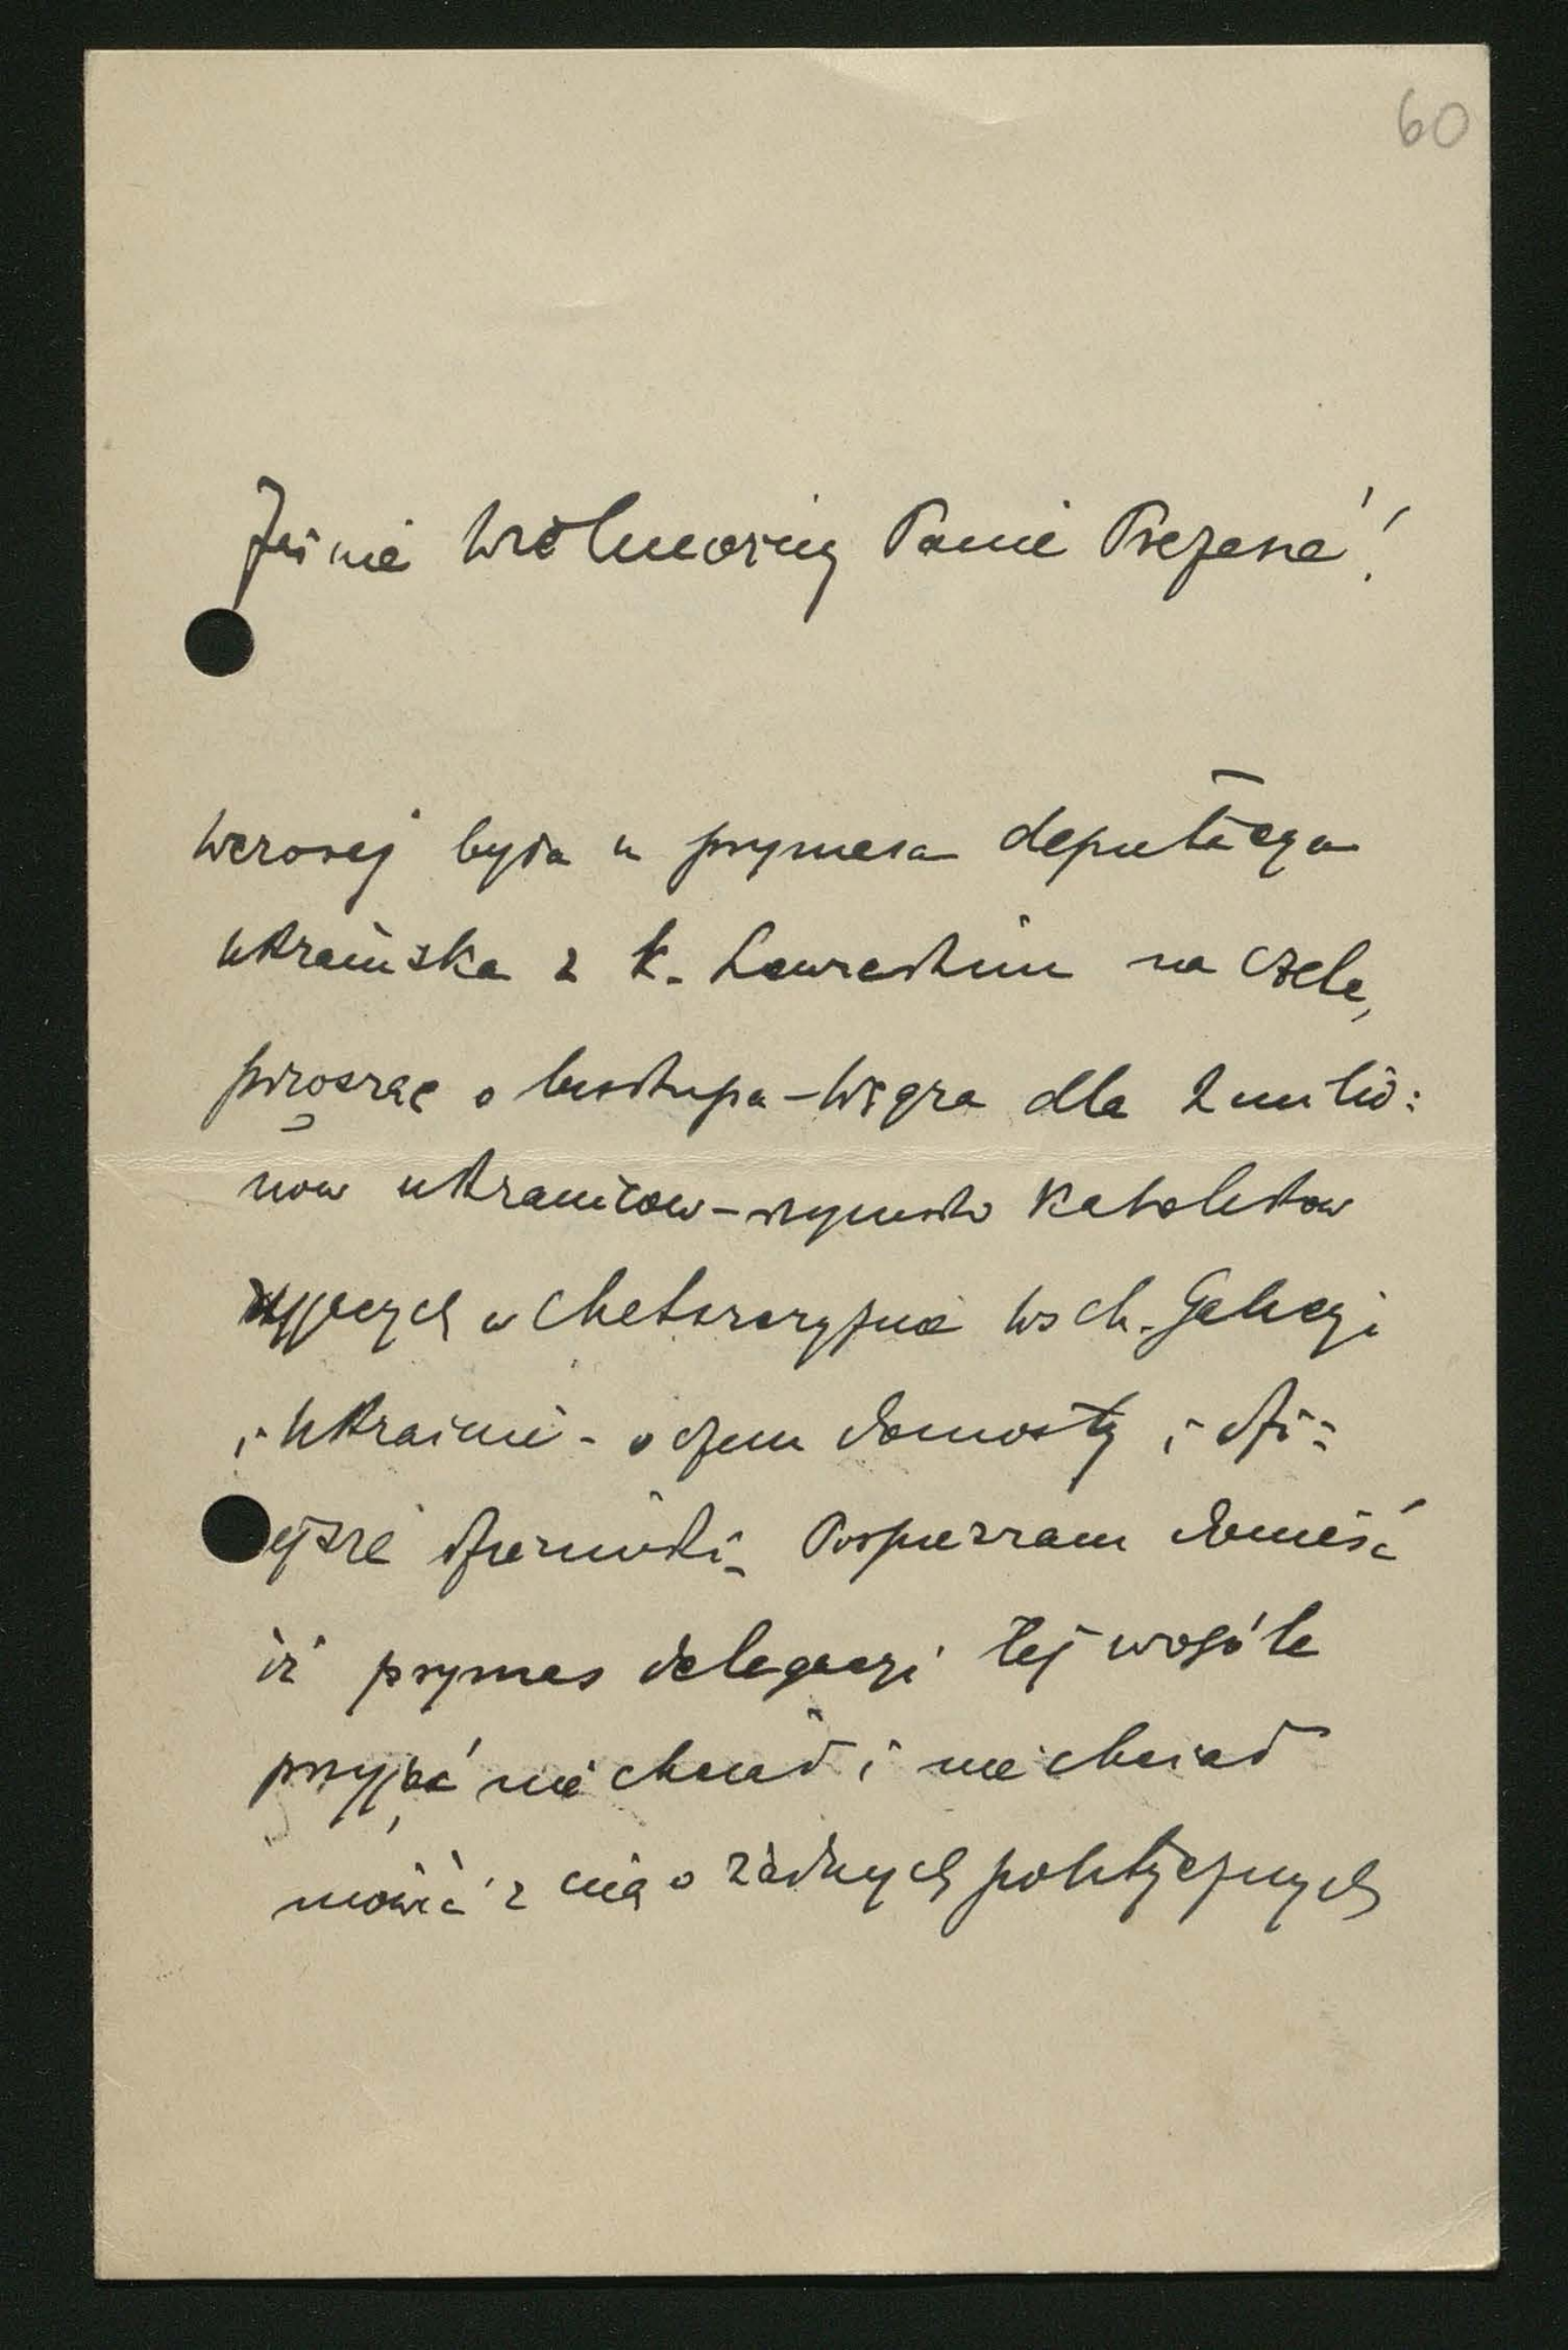 60
Jaśnie Wielmożny Panie Prezesie!
Wczoraj była u prymasa deputacya
ukraińska z k. na czele,
prosząc o biskupa-Węgra dla 2 milio=
now ukraincow-rzymsko Katolikow
żyjących w Chełmszczyźnie Wsch. Galicyi
i Ukrainie - o czem donosiły i dzi=
ejsze dzienniki. Pospieszam donieść
iż prymas delegacyi tej wogóle
przyjąć nie chciał i nie chciał
mówić z nią o żadnych politycznych